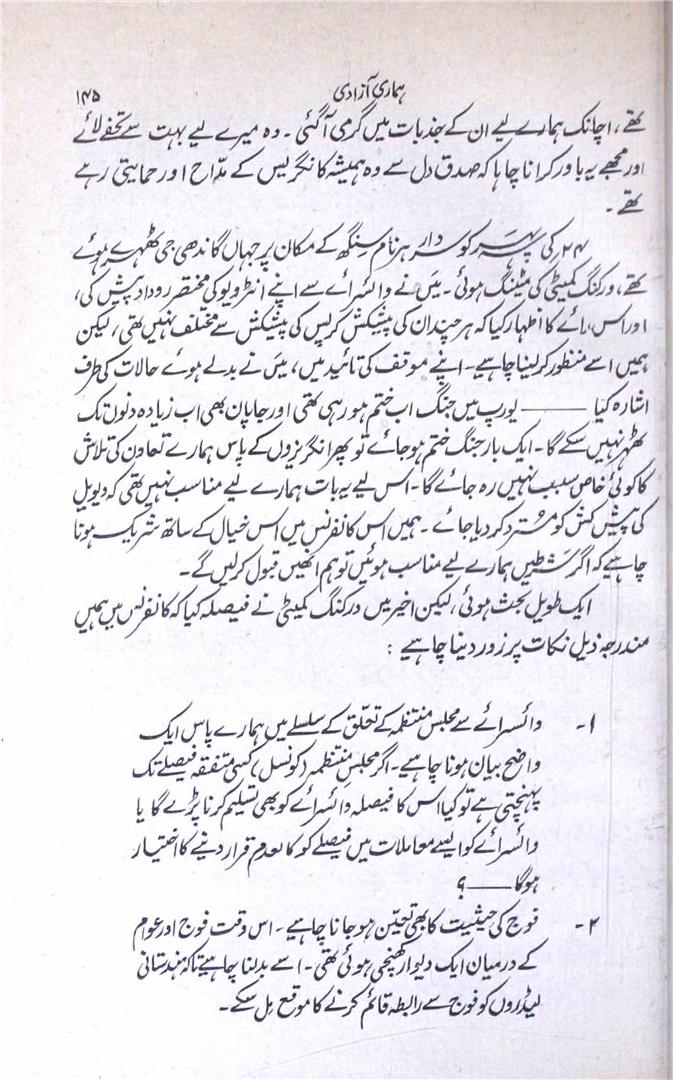 ہماری آزادی
۱۴۵
تھے، اچانک ہمارے لیے ان کے جذبات میں گرمی آگئی۔ وہ میرے لیے بہت سے تحفے لائے
اور مجھے یہ باور کرانا چاہا کہ صدق دل سے وہ ہمیشہ کانگریس کے مدّاح اور حمایتی رہے
تھے۔
۲۴ کی سہ پہر کو سردار ہرنام سنگھ کے مکان پر جہاں گاندھی جی ٹھہرے ہوئے
تھے، ورکنگ کمیٹی کی میٹنگ ہوئی۔ میں نے وائسرائے سے اپنے انٹرویو کی مختصر روداد پیش کی،
اور اس رائے کا اظہار کیا کہ ہر چند ان کی پیشکش کرپس کی پیشکش سے مختلف نہیں تھی، لیکن
ہمیں اسے منظور کر لینا چاہیے۔ اپنے موقف کی تائید میں، میں نے بدلے ہوئے حالات کی طرف
اشارہ کیا ——— یورپ میں جنگ اب ختم ہو رہی تھی اور جاپان بھی اب زیادہ دنوں تک
ٹھہر نہیں سکے گا۔ ایک بار جنگ ختم ہو جائے تو پھر انگریزوں کے پاس ہمارے تعاون کی تلاش
کا کوئی خاص سبب نہیں رہ جائے گا۔ اس لیے یہ بات ہمارے لیے مناسب نہیں تھی کہ ویویل
کی پیش کش کو مسترد کر دیا جائے۔ ہمیں اس کانفرنس میں اس خیال کے ساتھ شریک ہونا
چاہیے کہ اگر شرطیں ہمارے لیے مناسب ہوئیں تو ہم انھیں قبول کر لیں گے۔
ایک طویل بحث ہوئی، لیکن اخیر میں ورکنگ کمیٹی نے فیصلہ کیا کہ کانفرنس میں ہمیں
مندرجہ ذیل نکات پر زور دینا چاہیے :
۱- وائسرائے سے مجلس منتظمہ کے تعلّق کے سلسلے میں ہمارے پاس ایک
واضح بیان ہونا چاہیے۔ اگر مجلسِ منتظمہ (کونسل) کسی متفقہ فیصلے تک
پہنچتی ہے تو کیا اس کا فیصلہ وائسرائے کو بھی تسلیم کرنا پڑے گا یا
وائسرائے کو ایسے معاملات میں فیصلے کو کالعدم قرار دینے کا اختیار
ہوگا ——— ؟
۲- فوج کی حیثیت کا بھی تعیّن ہو جانا چاہیے۔ اس وقت فوج اور عوام
کے درمیان ایک دیوار کھنچی ہوئی تھی۔ اسے بدلنا چاہیے تاکہ ہندستانی
لیڈروں کو فوج سے رابطہ قائم کرنے کا موقع مل سکے۔